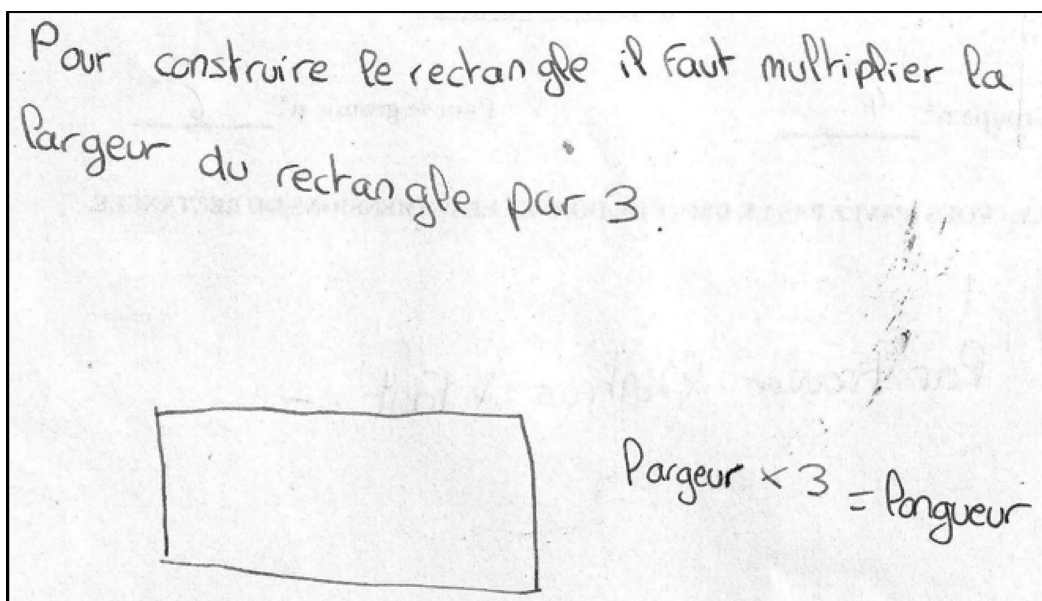 Pour construire le rectangle il faut multiplier la
largeur du rectangle par 3.
largeur × 3 = longueur